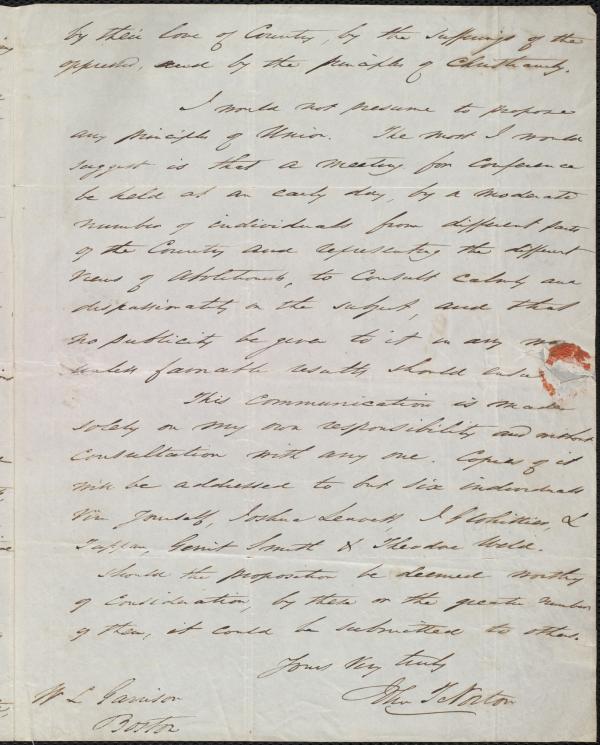 by their love of Country, by the sufferings of the
oppressed, and by the principles of Christianity.
I would not presume to propose
any principles of Union. The most I would
suggest is that a meeting for Conference
be held at an early day, by a moderate
number of individuals from different parts
of the Country and representing the different
views of Abolitionists, to Consult calmly and
dispassionately on the subject, and that
no publicity be given to it in any
unless favorable results should ensue
This Communication is made
solely on my own responsibility and without
Consultation with any one. Copies of it
will be addressed to but six individuals
Viz Yourself, Joshua Leavitt, J G Whittier, L
Tappan, Gerrit Smith & Theodore Weld.
Should the proposition be deemed worthy
of Consideration, by these or the greater number
of them, it could be submitted to others.
Yours Very truly
John T Norton
W L Garrison
Boston